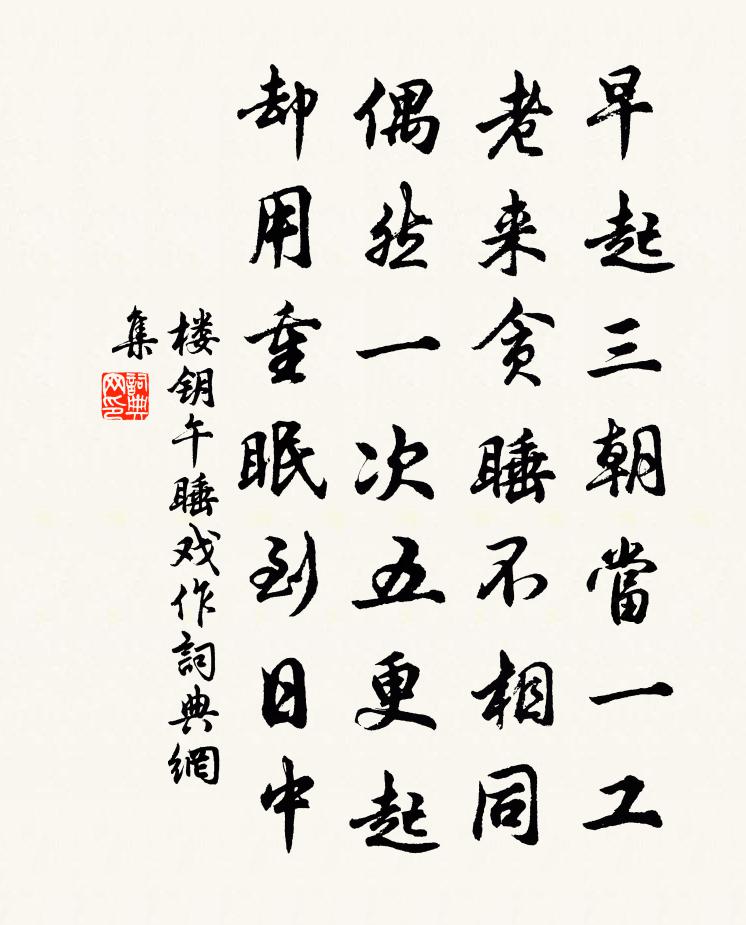 早起三朝當一工
老来贪睡不相同
偶然一次五更起
却用重眠到日中
楼钥午睡戏作詞典網
集
詞典网印